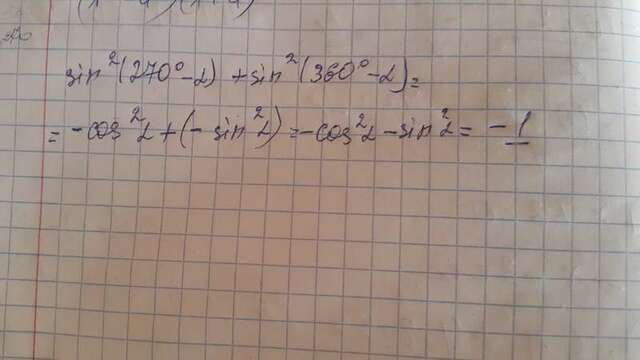 sin²(270°-α) + sin²(360°-α)=
= -cos²α + (- sin²α) = -cos²α - sin²α = -1